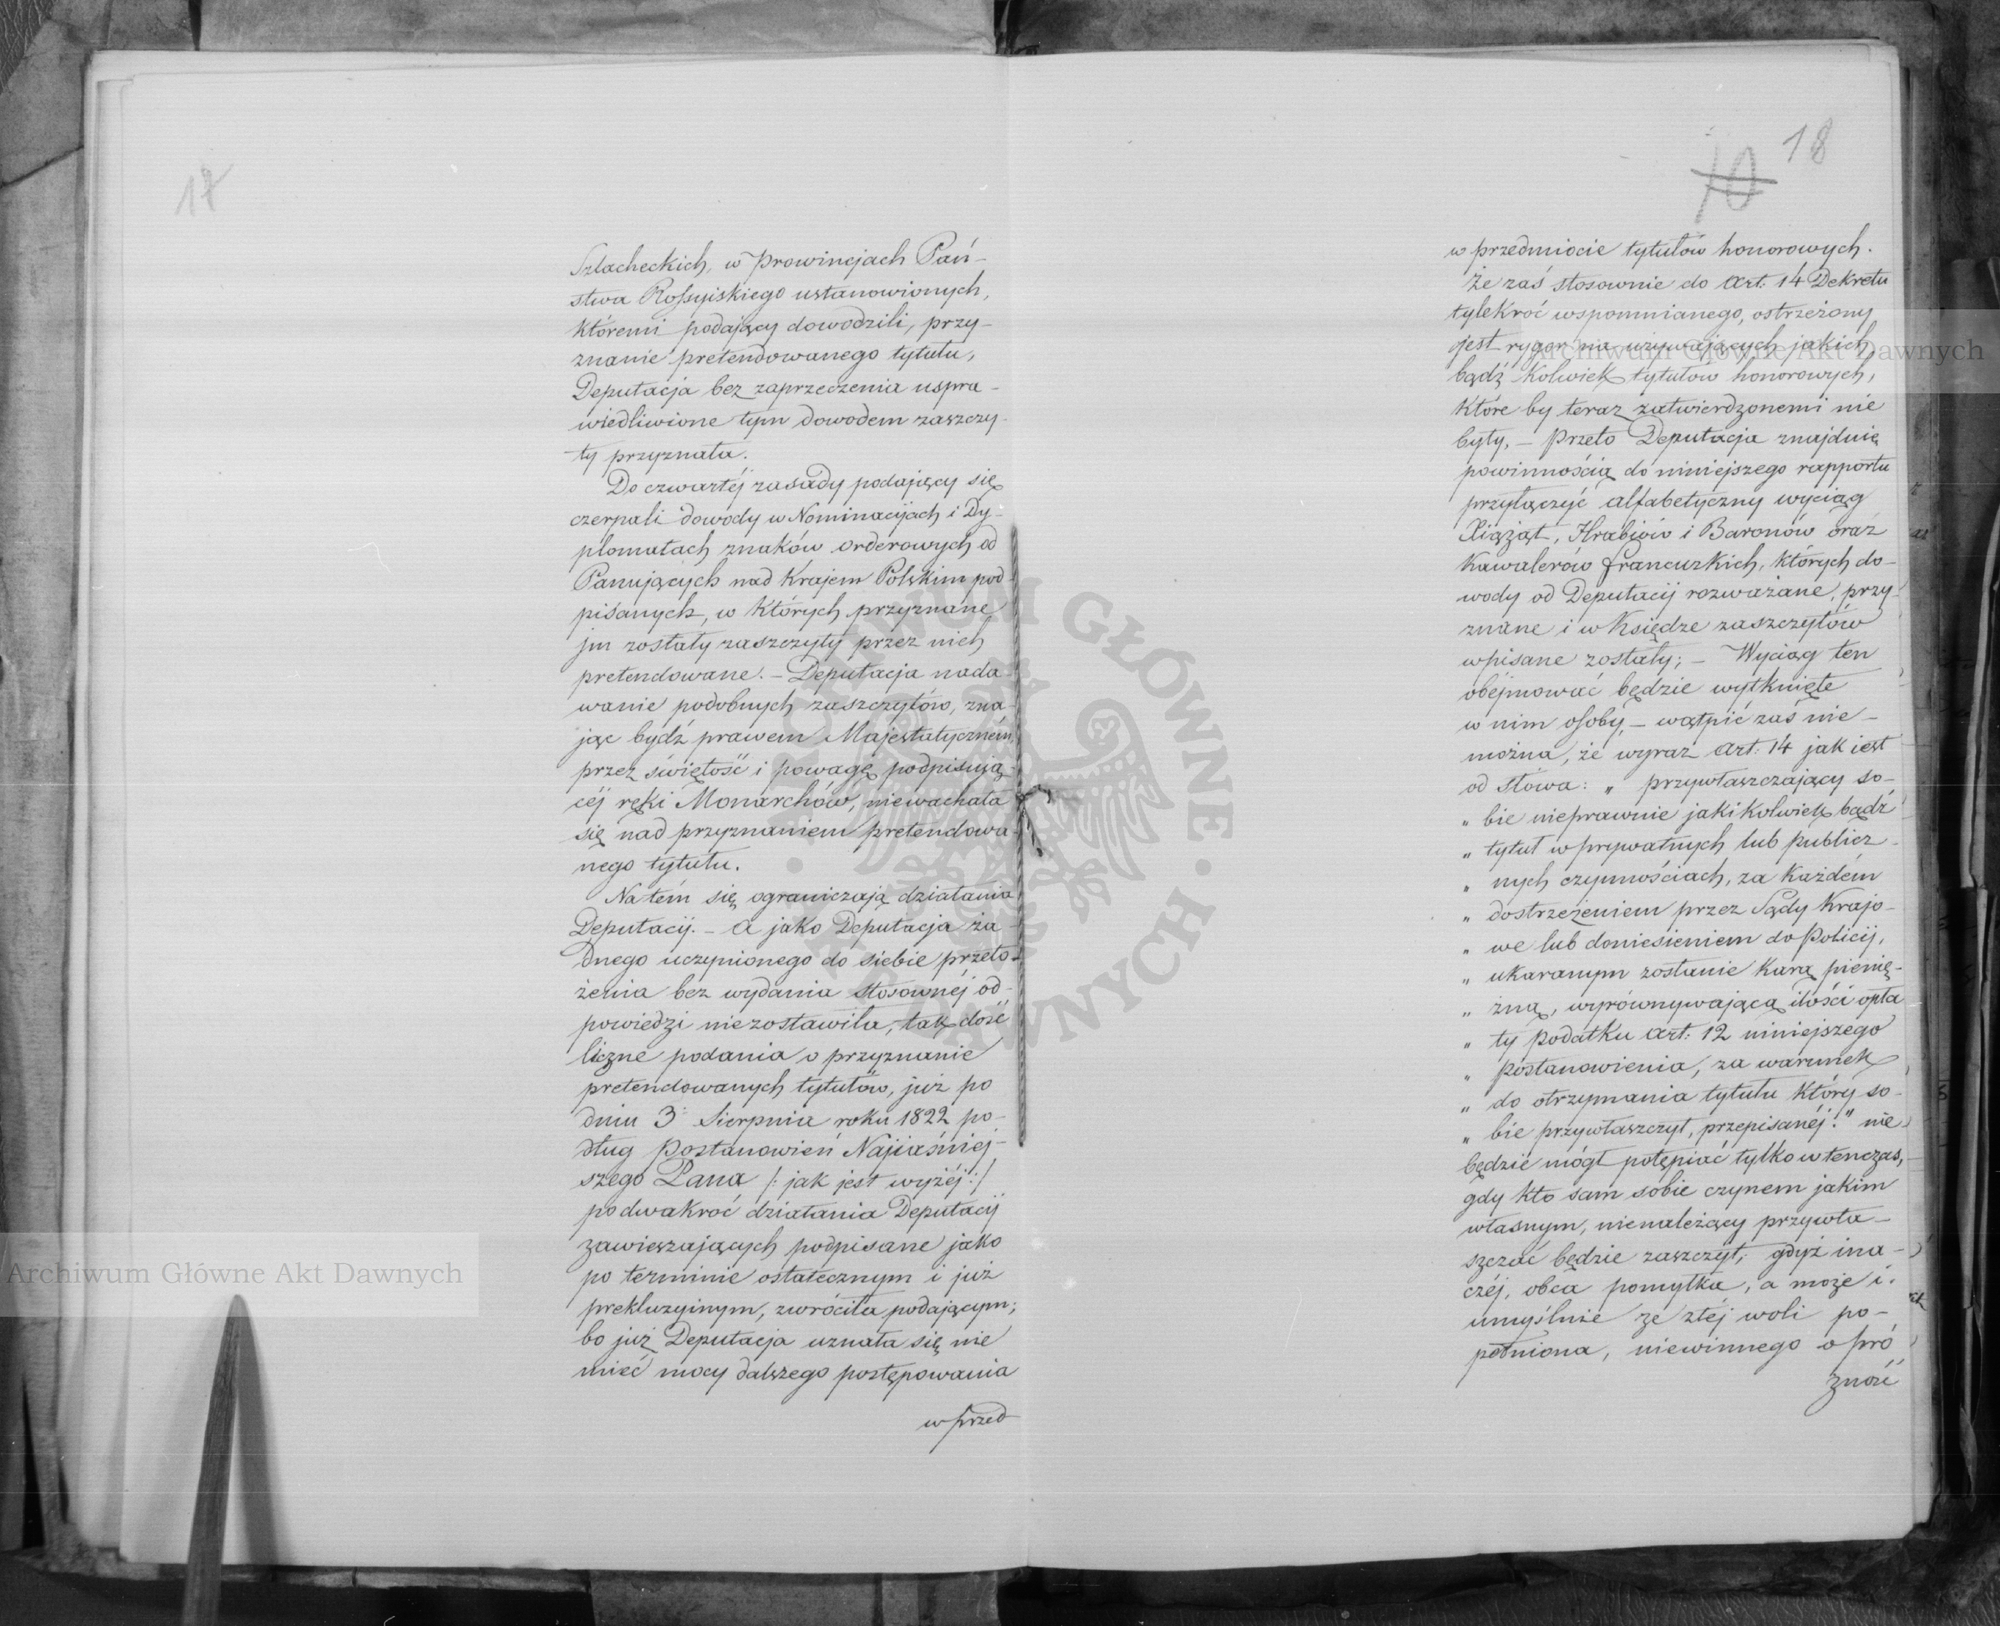 17
Szlacheckich, w Prowincjach Pań-
stwa Rossyiskiego ustanowionych,
któremi podający dowodzili, przy-
znanie pretendowanego tytułu,
Deputacja bez zaprzeczenia uspra-
wiedliwione tym dowodem zaszczy-
ty przyznała.
Do czwartéj zasady podający się
czerpali dowody w Nominacijach i Dy-
plomatach znaków orderowych od
Panujących nad Krajem Polskim pod-
pisanych, w których przyznane
jm zostały zaszczyty przez nich
pretendowane. – Deputacja nada-
wanie podobnych zaszczytów, zna-
jąc bydź prawem Majestatyczném,
przez świętość i powagę podpisują-
céj ręki Monarchów, niewachała
się nad przyznaniem pretendowa-
nego tytułu.
Na tém się ograniczają działania
Deputacij. – A jako Deputacja ża-
dnego uczynionego do siebie przeło-
żenia bez wydania stosownéj od-
powiedzi nie zostawiła, tak dość
liczne podania o przyznanie
pretendowanych tytułów, już po
dniu 3 Sierpnia roku 1822 po-
dług Postanowień Najiaśniej-
szego Pana /: jak jest wyżéj :/
po dwakroć działania Deputacij
zawieszających podpisane jako
po terminie ostatecznym i już
prekluzyinym, zwróciła podającym;
bo już Deputacja uznała się nie
mieć mocy dalszego postępowania
w przed-
10 18
w przedmiocie tytułów honorowych.
Że zaś stosownie do Art: 14 Dekretu
tylekroć wspomnianego, ostrzeżony
jest rygor na używających jakich
bądź kolwiek tytułow honorowych,
które by teraz zatwierdzonemi nie
były, – Przeto Deputacja znajduię
powinnością do niniejszego rapportu
przyłączyć alfabetyczny wyciąg
Xiążąt, Hrabiów i Baronów oraz
Kawalerów francuzkich, których do-
wody od Deputacij rozważane, przy-
znane i w Księdze zaszczytów
wpisane zostały; – Wyciąg ten
obéjmować będzie wytknięte
w nim osoby, – wątpić zaś nie-
można, że wyraz Art: 14 jak iest
od słowa: „ przywłaszczający so-
„ bie nieprawnie jakikolwiek bądź
„ tytuł w prywatnych lub publicz-
„ nych czynnościach, za każdém
„ dostrzeżeniem przez Sądy Krajo-
„ we lub doniesieniem do Policij,
„ ukaranym zostanie karą pienię-
„ żną, wyrównywającą ilości opła
„ ty podatku Art: 12 niniejszego
„ postanowienia, za warunek
„ do otrzymania tytułu który so-
„ bie przywłaszczył, przepisanéj." nie
będzie mógł potępiać tylko w tenczas,
gdy kto sam sobie czynem jakim
własnym, nienależący przywła-
szczać będzie zaszczyt, gdyż ina-
czéj, obca pomyłka, a może i
umyślnie ze złéj woli po-
pełniona, niewinnego o pró
żność
Archiwum Główne Akt Dawnych
Archiwum Główne Akt Dawnych
ARCHIWUM GŁÓWNE · AKT DAWNYCH ·